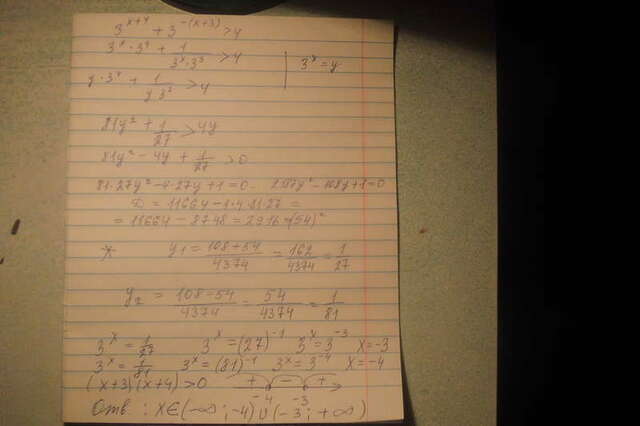 3^(x+4) + 3^(-(x+3)) > 4
3^x · 3^4 + 1/(3^x · 3^3) > 4 | 3^x = y
y · 3^4 + 1/(y 3^3) > 4
81y² + 1/27 > 4y
81y² - 4y + 1/27 > 0
81·27y² - 4·27y + 1 = 0. 2187y² - 108y + 1 = 0
D = 11664 - 4·81·27 =
= 11664 - 8748 = 2916 = (54)²
y₁ = (108+54)/4374 = 162/4374 = 1/27
y₂ = (108-54)/4374 = 54/4374 = 1/81
3^x = 1/27 3^x = (27)^-1 3^x = 3^-3 x = -3
3^x = 1/81 3^x = (81)^-1 3^x = 3^-4 x = -4
(x+3)(x+4) > 0 + - +
-4 -3
Отв. : x∈(-∞; -4)∪(-3; +∞)